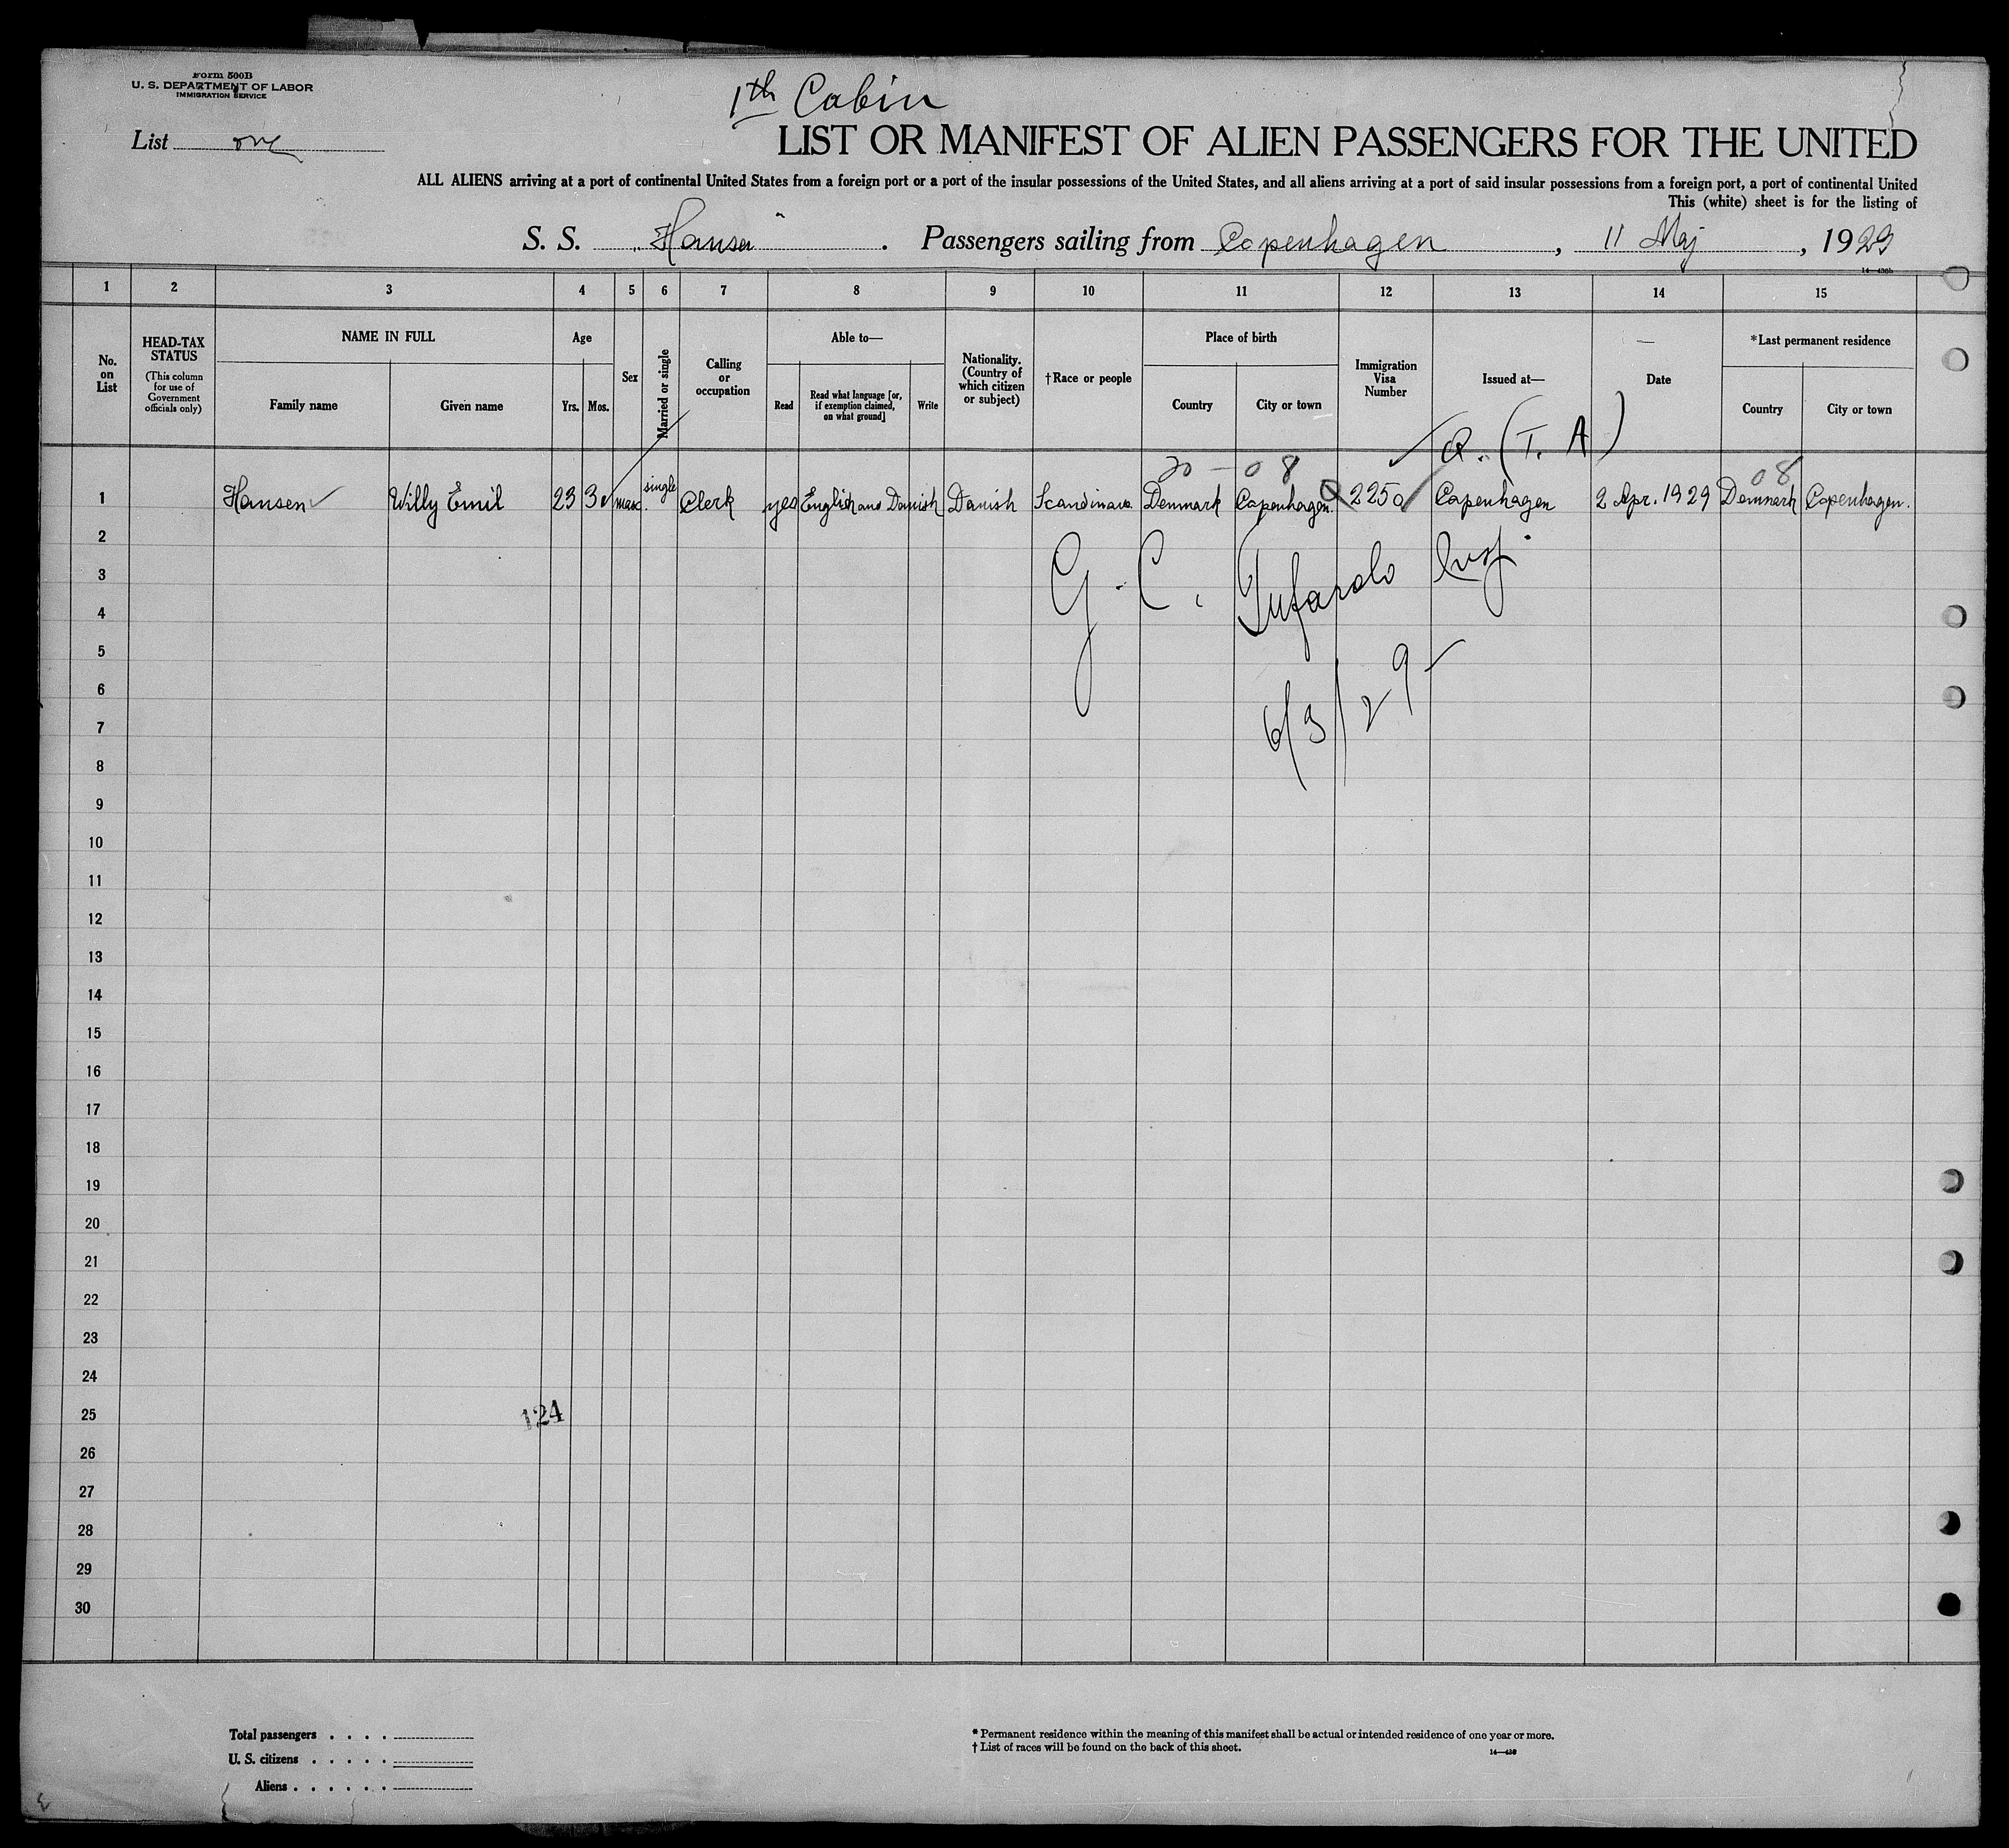 Form 500B
U. S. DEPARTMENT OF LABOR
IMMIGRATION SERVICE
1th Cabin
List one
LIST OR MANIFEST OF ALIEN PASSENGERS FOR THE UNITED
ALL ALIENS arriving at a port of continental United States from a foreign port or a port of the insular possessions of the United States, and all aliens arriving at a port of said insular possessions from a foreign port, a port of continental United
This (white) sheet is for the listing of
S. S. "Hansa". Passengers sailing from Copenhagen, 11 Maj, 1929
14—430b
1 2 3 4 5 6 7 8 9 10 11 12 13 14 15
No. on List
HEAD-TAX STATUS
(This column for use of Government officials only)
NAME IN FULL
Family name Given name
Age
Yrs. Mos.
Sex
Married or single
Calling or occupation
Able to—
Read Read what language [or, if exemption claimed, on what ground] Write
Nationality. (Country of which citizen or subject)
†Race or people
Place of birth
Country City or town
Immigration Visa Number
Issued at—
Date
*Last permanent residence
Country City or town
Q. (T. A)
20 - 08 08
1 Hansen Willy Emil 23 3 single Clerk yes English and Danish Danish Denmark Copenhagen. Q 2250 Copenhagen 2 Apr. 1929 Denmark Copenhagen.
2
G. C. Insp.
3
4
5
6
6/3/29
7
8
9
10
11
12
13
14
15
16
17
18
19
20
21
22
23
24
25
124
26
27
28
29
30
Total passengers . . . .
U. S. citizens . . . . .
Aliens . . . . . .
* Permanent residence within the meaning of this manifest shall be actual or intended residence of one year or more.
† List of races will be found on the back of this sheet.
14—430